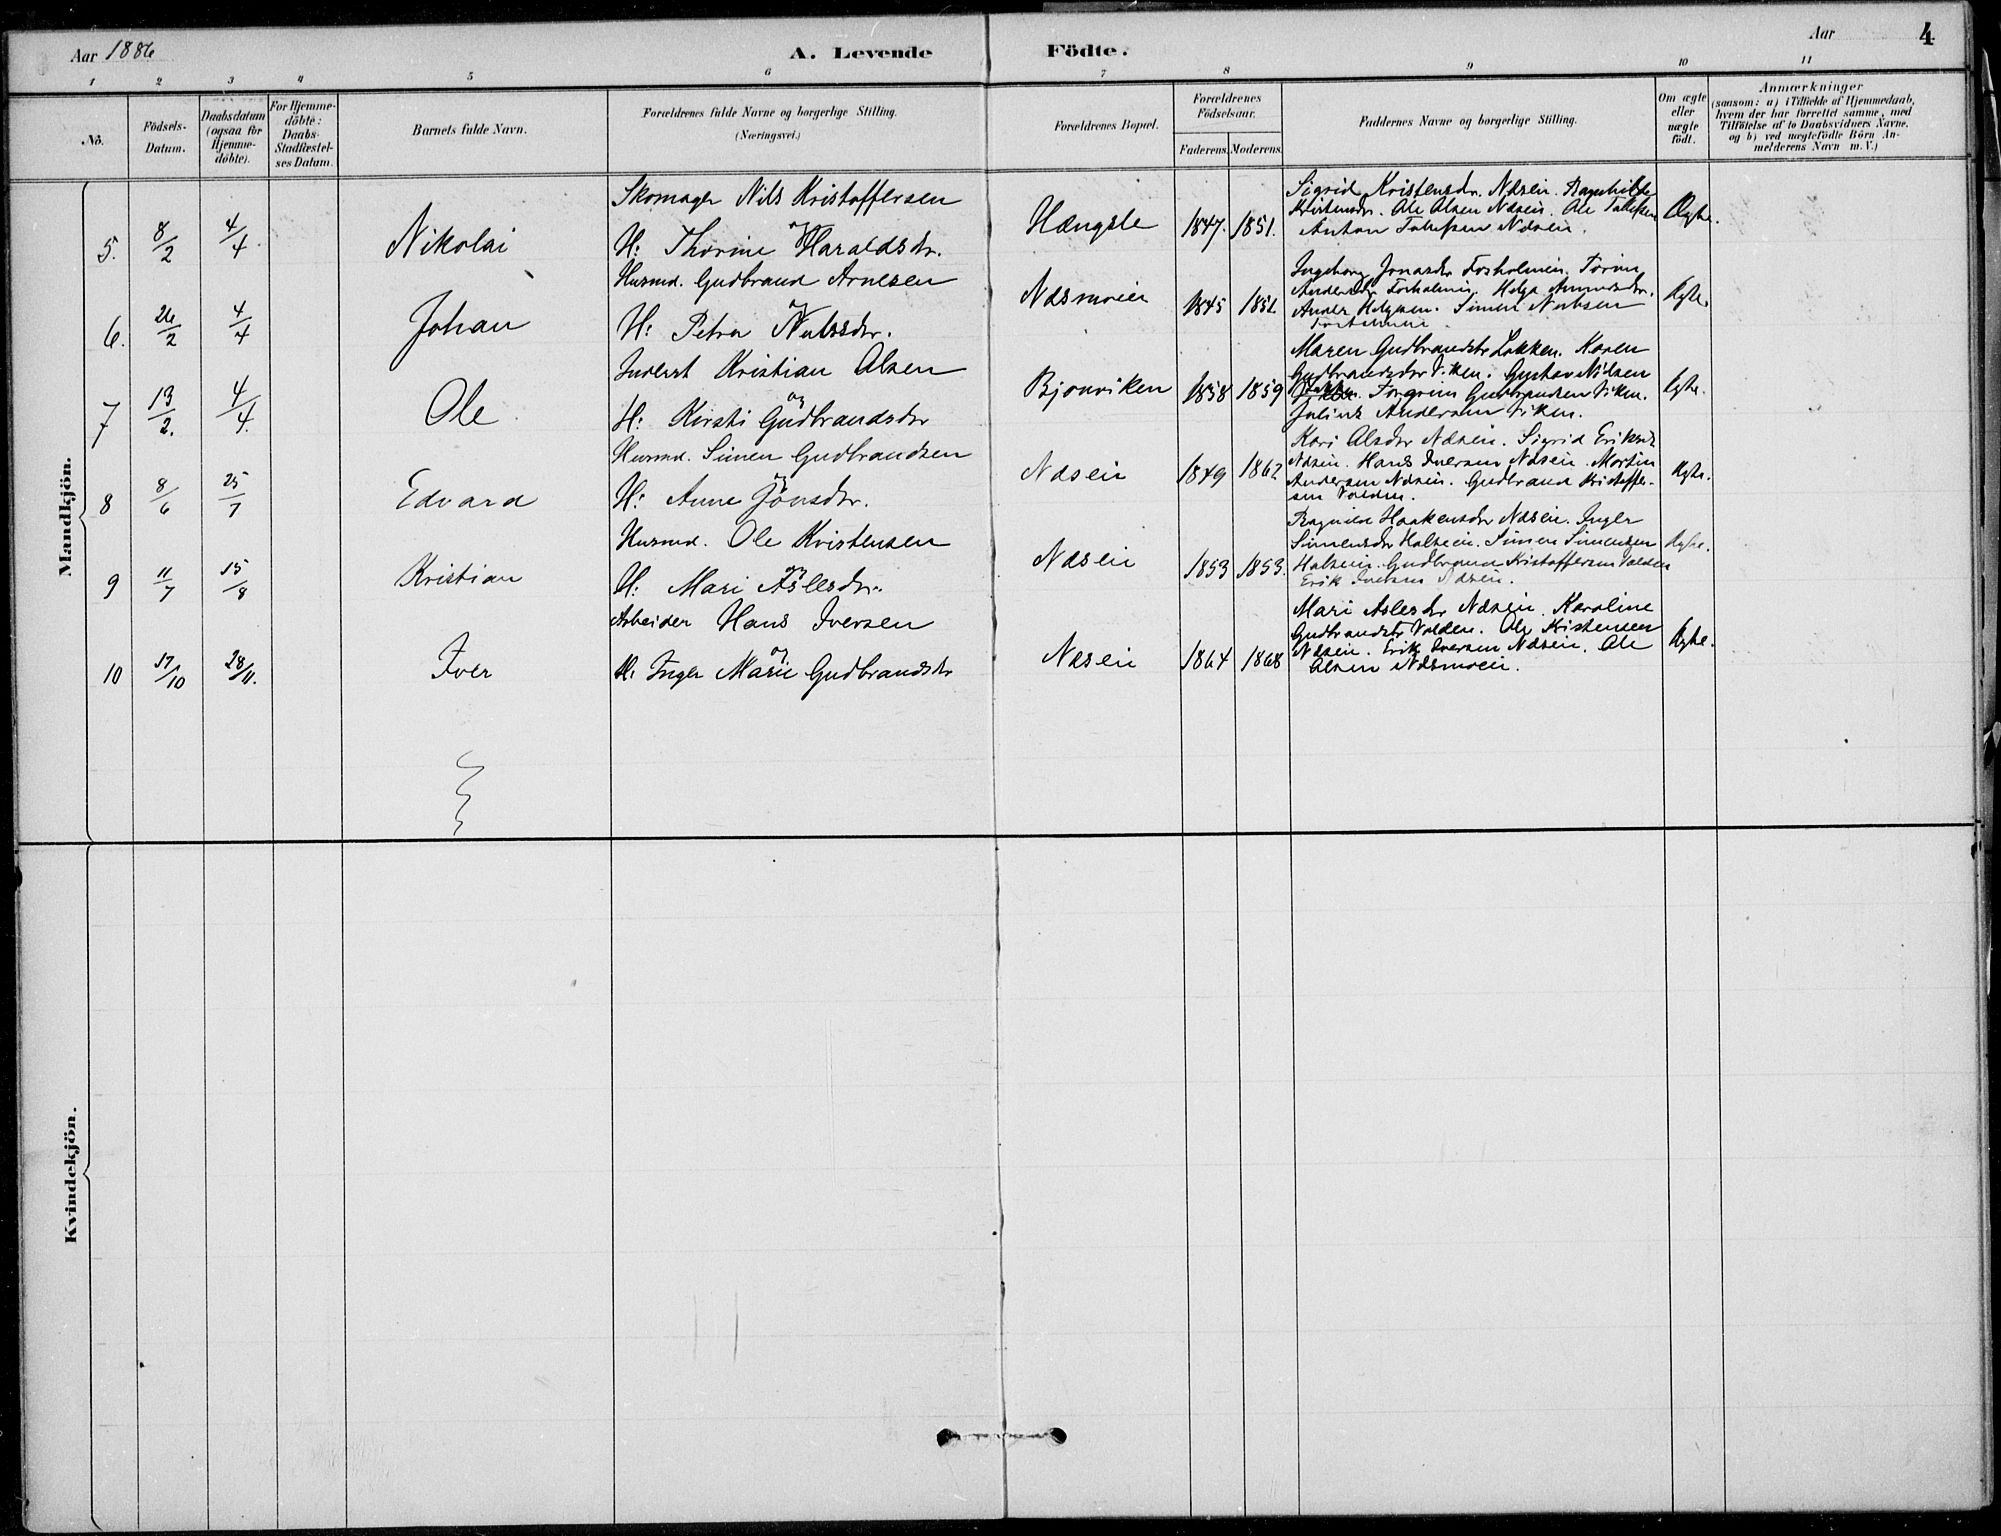 Aar 1886
A. Levende Födte.
Aar
4
1 2 3 4 5 6 7 8 9 10 11
No.
Födsels-
Datum.
Daabsdatum
(ogsaa for
Hjemme-
döbte).
For Hjemme-
döbte:
Daabs-
Stadfæstel-
ses Datum.
Barnets fulde Navn.
Forældrenes fulde Navne og borgerlige Stilling.
(Næringsvei.)
Forældrenes Bopæl.
Forældrenes
Födselsaar.
Faderens. Moderens.
Faddernes Navne og borgerlige Stilling.
Om ægte
eller
uægte
födt.
Anmærkninger
(saasom: a) i Tilfælde af Hjemmedaab,
hvem der har forrettet samme, med
Tilföielse af to Daabsvidners Navne,
og b) ved uægtefödte Börn An-
melderens Navn m. V.)
Mandkjön.
5. 8/2 4/4. Nikolai
Skomager Nils Kristoffersen
og
H: Thorine Haraldsdr.
Hængsle 1847. 1851.
Sigrid Kristensdr. Næsein. Ragnhilde
Kristensdr. Ole Olsen Næsein. Ole
Anton Næsein.
Ægte.
6. 26/2 4/4 Johan
Husmd. Gudbrand Arnesen
og
H: Petra Nubsdr.
Næsmoein 1845
Ingeborg Jonasdr Fosholmein. Torine
Andersdr Fosholmein. Helga
Anders Helgesen. Simen Nubsen
Fosholmein
Ægte.
7 13/2. 4/4. Ole
Inderst Kristian Olsen
og
H: Kirsti Gudbrandsdr
Bjonviken 1858 1859
Maren Gudbrandsdr Løkken. Karen
Gudbrandsdr Viken. Gustav Nilsen
Torgrim Gudbrandsen Viken.
Julius Andersen Viken.
Ægte.
8 8/6 25/7 Edvard
Husmd. Simen Gudbrandsen
og
H: Anne Jonsdr.
Næsein 1849 1862
Kari Olsdr Næsein. Sigrid Eriksdr
Næsein. Hans Iversen Næsein. Martin
Andersen Næsein. Gudbrand Kristoffer-
sen Volden.
Ægte.
9 11/7 15/8 Kristian
Husmd. Ole Kristensen
og
H: Mari Aslesdr.
Næsein 1853 1853.
Ragnild Haakensdr Næsein. Inger
Simensdr Halsein. Simen Simensen
Halsein. Gudbrand Kristoffersen Volden
Erik Iversen Næsein.
Ægte.
10 17/10 28/11. Iver
Arbeider Hans Iversen
og
H. Inger Marie Gudbrandsdr
Næsein 1864 1868
Mari Aslesdr Næsein. Karoline
Gudbrandsdr Volden. Ole Kristensen
Næsein. Erik Iversen Næsein. Ole
Olsen Næsmoein.
Ægte.
Kvindekjön.